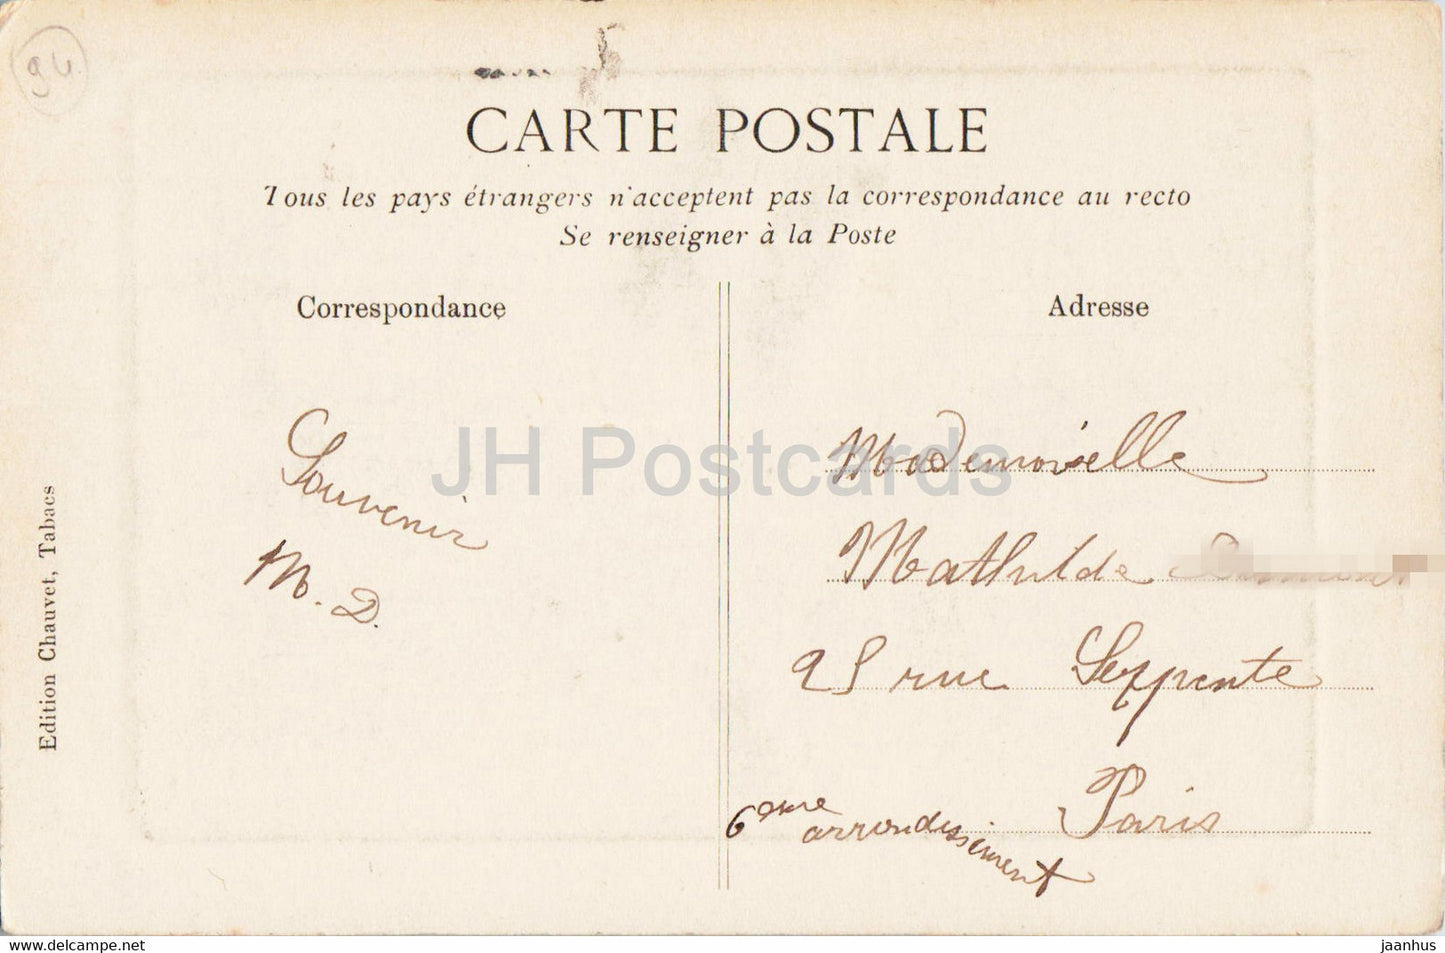 94
CARTE POSTALE
Tous les pays étrangers n'acceptent pas la correspondance au recto
Se renseigner à la Poste
Correspondance
Adresse
Souvenir
M. D.
Mademoiselle
Mathilde
25 rue Serpente
Paris
6eme arrondissement
Edition Chauvet, Tabacs
JH Postcards
www.delcampe.net
jaanhus